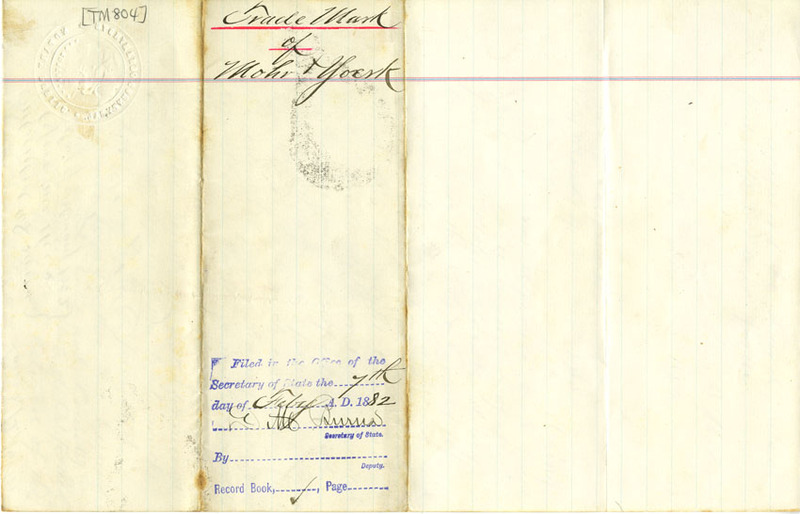 [TM804]
Trade Mark
of
Mohr & Yoerk
Filed in the Office of the
Secretary of State the 7th
day of Feby A. D. 1882
Secretary of State.
By
Deputy.
Record Book, , Page